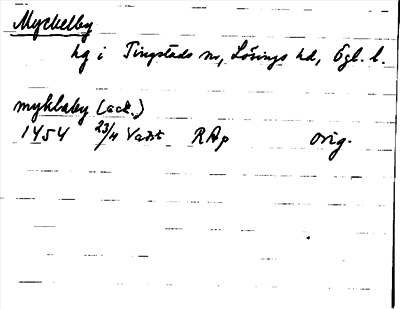 Myckelby
hg i Tingstads sn, Lösings hd, Ögl. l.
myklaby (ack.)
1454 23/4 Vadst RAp orig.